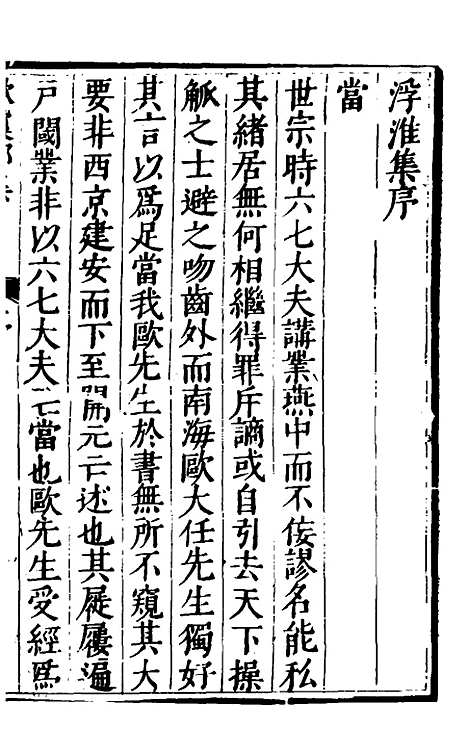 浮淮集序
當
世宗時六七大夫講業燕中而不佞謬名能私
其緒居無何相繼得罪斥謫或自引去天下操
觚之士避之吻齒外而南海歐大任先生獨好
其言以爲足當我歐先生於書無所不窺其大
要非西京建安而下至開元亡述也其屣屨遍
戶閾業非以六七大夫亡當也歐先生受經爲